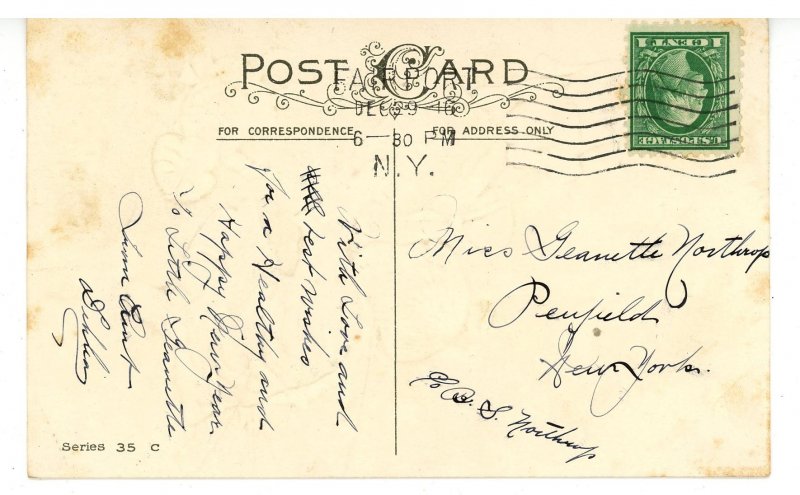 POST CARD
FAIRPORT
DEC 29 16
6 30 PM
N.Y.
1 CENT 1
U.S. POSTAGE
FOR CORRESPONDENCE
FOR ADDRESS ONLY
With Love and
best wishes
for a Healthy and
Happy New Year.
To Little Geanette
From Aunt
Miss Geanette Northrop
Penfield
New York.
C/o B. S. Northrop
Series 35 C